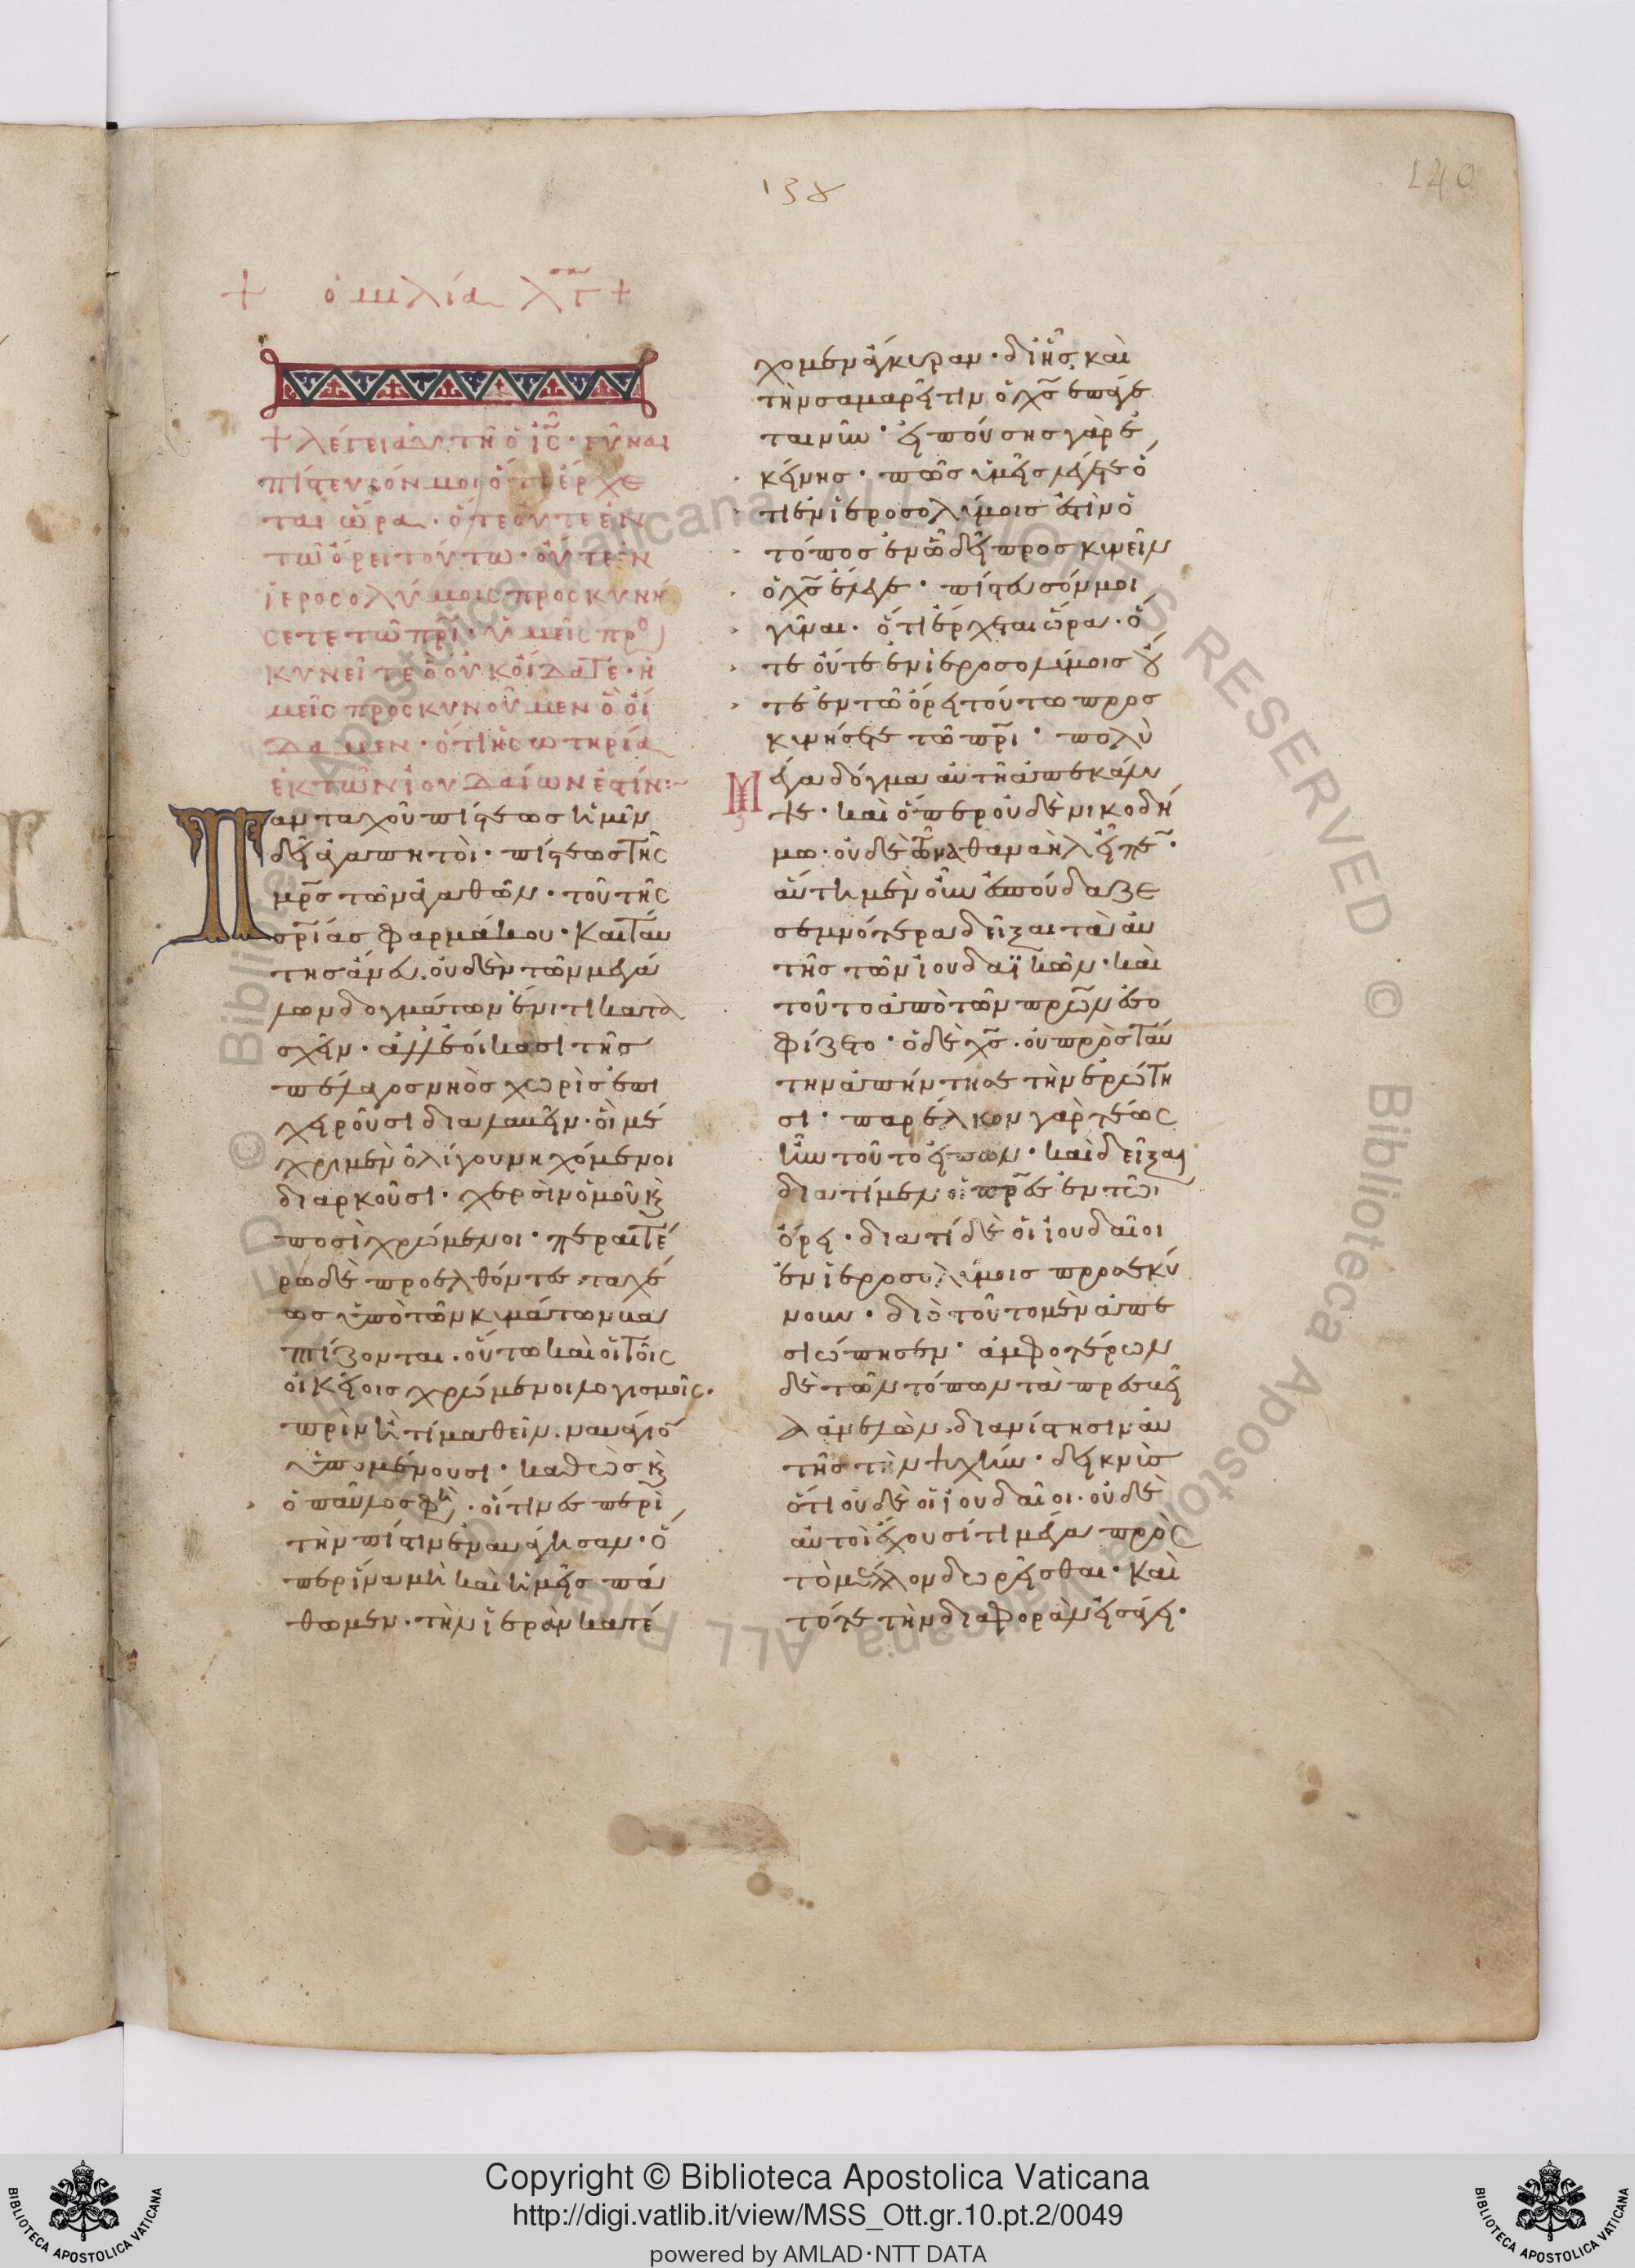 138
140
+ ὁμιλία λγ +
+ λέγει αὐτῆ ὁ ι̅ς̅· γύναι
πίστευσόν μοι ὅτι ἔρχε
ται ὥρα· ὅτε οὔτε ἐν
τῶ ὄρει τούτω· οὔτε ἐν
ἱεροσολύμοις προσκυνή
σετε τῶ πρι̅· ὑμεῖς προσ
κυνεῖτε ὃ οὐκ οἴδατε· ἡ
μεῖς προσκυνοῦμεν ὃ οἴ
δαμεν· ὅτι ἡ σωτηρία
ἐκ τῶν ἰουδαίων ἐστίν:~
Πανταχοῦ πίστεως ἡμῖν
δεῖ ἀγαπητοί· πίστεως τῆς
μρ̅ς τῶν ἀγαθῶν· τοῦ τῆς
σρ̅ίας φαρμάκου· καὶ ταύ
της ἄνευ. οὐδὲν τῶν μεγά
λων δογμάτων ἔνι τι κατα
σχεῖν· ἀλλ' ἐοίκασι τῆς
πέλαγος νηὸς χωρὶς ἐπι
χειροῦσι διαλαβεῖν· οἳ μέ
χρι μὲν ὀλίγου νηχόμενοι
διαρκοῦσι· χερσὶν ὁμοῦ κ̀
ποσὶ χρώμενοι· περαιτέ
ρω δὲ προελθόντες ταχέ
ως ὑπὸ τῶν κυμάτων βα
πτίζονται· οὕτω καὶ οἱ τοῖς
οἰκείοις χρώμενοι λογισμοῖς·
πρὶν ἤ τι μαθεῖν. ναυάγιο̅
ὑπομένουσι· καθὼς κ̀
ὁ παῦλος φὴ· οἵτινες περὶ
τὴν πίστιν ἐναυάγησαν· ὅ
περ ἵνα μὴ καὶ ἡμεῖς πά
θωμεν· τὴν ἱερὰν κατέ
χωμεν ἄγκυραν· δι' ἧς καὶ
τὴν σαμαρεῖτιν ὁ χς̅ ἐπάγε
ται νῦν· εἰπούσης γὰρ ἐ
κείνης· πῶς ὑμεῖς λέγετε ὅ
τι ἐν ἱεροσολύμοις ἐστὶν ὁ
τόπος ἐν ὧ δεῖ προσκυνεῖν
ὁ χς̅ ἔλεγε· πίστευσόν μοι
γύναι· ὅτι ἔρχεται ὥρα· ὅ
τε οὔτε ἐν ἱεροσολύμοις οὔ
τε ἐν τῶ ὄρει τούτω προσ
κυνήσετε τῶ πρι̅· πολὺ
Μέγα δόγμα αὐτῆ ἀπεκάλυ
ψε· καὶ ὅπερ οὐδὲ νικοδή
μω· οὐδὲ τῶ ναθαναὴλ εἶπε̅·
αὕτη μὲν οὖν ἐσπούδαζε
σεμνότερα δεῖξαι τὰ αὐ
τῆς τῶν ἰουδαϊκῶν· καὶ
τοῦτο ἀπὸ τῶν πρω̅ν ἐσο
φίζετο· ὁ δὲ χς̅. οὐ πρὸς ταύ
την ἀπήντησε τὴν ἐρώτη
σι· παρέλκον γὰρ τέως
ἦν τοῦτο εἰπεῖν· καὶ δεῖξαι
διατί μὲν οἱ πρ̅ες ἐν τῶ
ὄρει· διατί δὲ οἱ ἰουδαῖοι
ἐν ἱεροσολύμοις προσεκύ
νουν· διὸ τοῦτο μὲν ἀπε
σιώπησεν· ἀμφοτέρων
δὲ τῶν τόπων τὰ πρεσβεῖ
α ἀνελὼν. διανίστησιν αὐ
τῆς τὴν ψυχὴν· δεικνὺς
ὅτι οὐδὲ οἱ ἰουδαῖοι· οὐδὲ
αὐτοὶ ἔχουσί τι μέγα πρὸς
τὸ μέλλον δωρεῖσθαι· καὶ
τότε τὴν διαφορὰν εἰσάγει·
Copyright © Biblioteca Apostolica Vaticana
http://digi.vatlib.it/view/MSS_Ott.gr.10.pt.2/0049
powered by AMLAD·NTT DATA
BIBLIOTECA APOSTOLICA VATICANA
BIBLIOTECA APOSTOLICA VATICANA